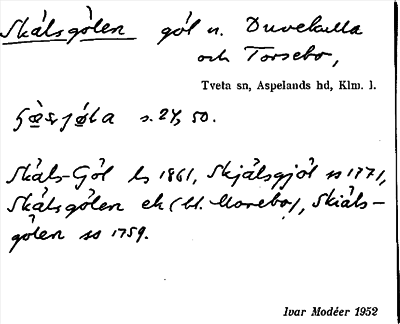 Skälsgölen göl n. Duvekulla
och Torsebo,
Tveta sn, Aspelands hd, Klm. l.
s. 24, 50.
Skäls-Göl ls 1861, Skjälsgjöl ss 1771,
Skälsgölen ek (bl. Morebo), Skiäls-
gölen ss 1759.
Ivar Modéer 1952